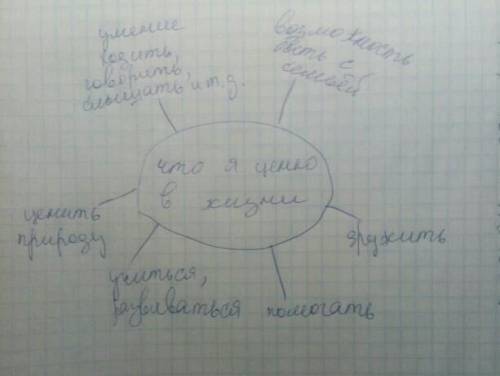 умение
ходить,
говорить,
слышать и т.д.
возможность
быть с
семьей
что я ценю
в жизни
ценить
природу
дружить
учиться,
развиваться
помогать